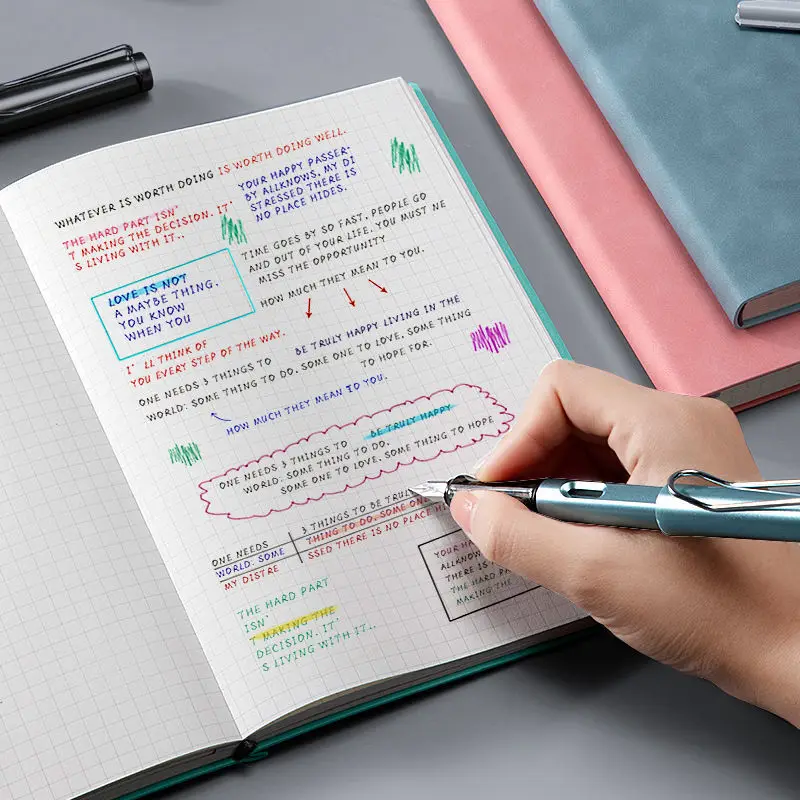 WHATEVER IS WORTH DOING IS WORTH DOING WELL.
THE HARD PART ISN'
T MAKING THE DECISION. IT'
S LIVING WITH IT..
YOUR HAPPY PASSER-
BY ALLKNOWS, MY DI
STRESSED THERE IS
NO PLACE HIDES.
TIME GOES BY SO FAST, PEOPLE GO
AND OUT OF YOUR LIFE. YOU MUST NE
MISS THE OPPORTUNITY
HOW MUCH THEY MEAN TO YOU.
LOVE IS NOT
A MAYBE THING.
YOU KNOW
WHEN YOU
I' LL THINK OF
YOU EVERY STEP OF THE WAY.
BE TRULY HAPPY LIVING IN THE
ONE NEEDS 3 THINGS TO
WORLD: SOME THING TO DO. SOME ONE TO LOVE. SOME THING
TO HOPE FOR.
HOW MUCH THEY MEAN TO YOU.
ONE NEEDS 3 THINGS TO BE TRULY HAPPY
WORLD: SOME THING TO DO.
SOME ONE TO LOVE. SOME THING TO HOPE
ONE NEEDS 3 THINGS TO BE TRULY
WORLD. SOME THING TO DO. SOME ONE
MY DISTRE SSED THERE IS NO PLACE HI
YOUR HA
ALLKNOW
THERE IS
THE HARD PA
MAKING THE
THE HARD PART
ISN'
T MAKING THE
DECISION. IT'
S LIVING WITH IT..